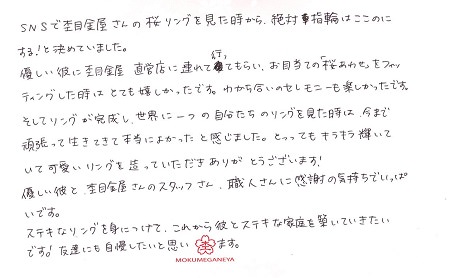 SNSで杢目金屋さんの桜リングを見た時から、絶対指輪はここのに
する!と決めていました。
優しい彼に杢目金屋 直営店に連れて行ってもらい、お目当ての「桜あわせ」をフィッ
ティングした時はとても嬉しかったです。わかち合いのセレモニーも楽しかったです。
そしてリングが完成し、世界に一つの自分たちのリングを見た時は、今まで
頑張って生きてきて本当によかったと感じました。とってもキラキラ輝いて
いて可愛いリングを造っていただきありがとうございます!
優しい彼と、杢目金屋さんのスタッフさん、職人さんに感謝の気持ちでいっぱ
いです。
ステキなリングを身につけて、これから彼とステキな家庭を築いていきたい
です!友達にも自慢したいと思います。
杢
MOKUMEGANEYA